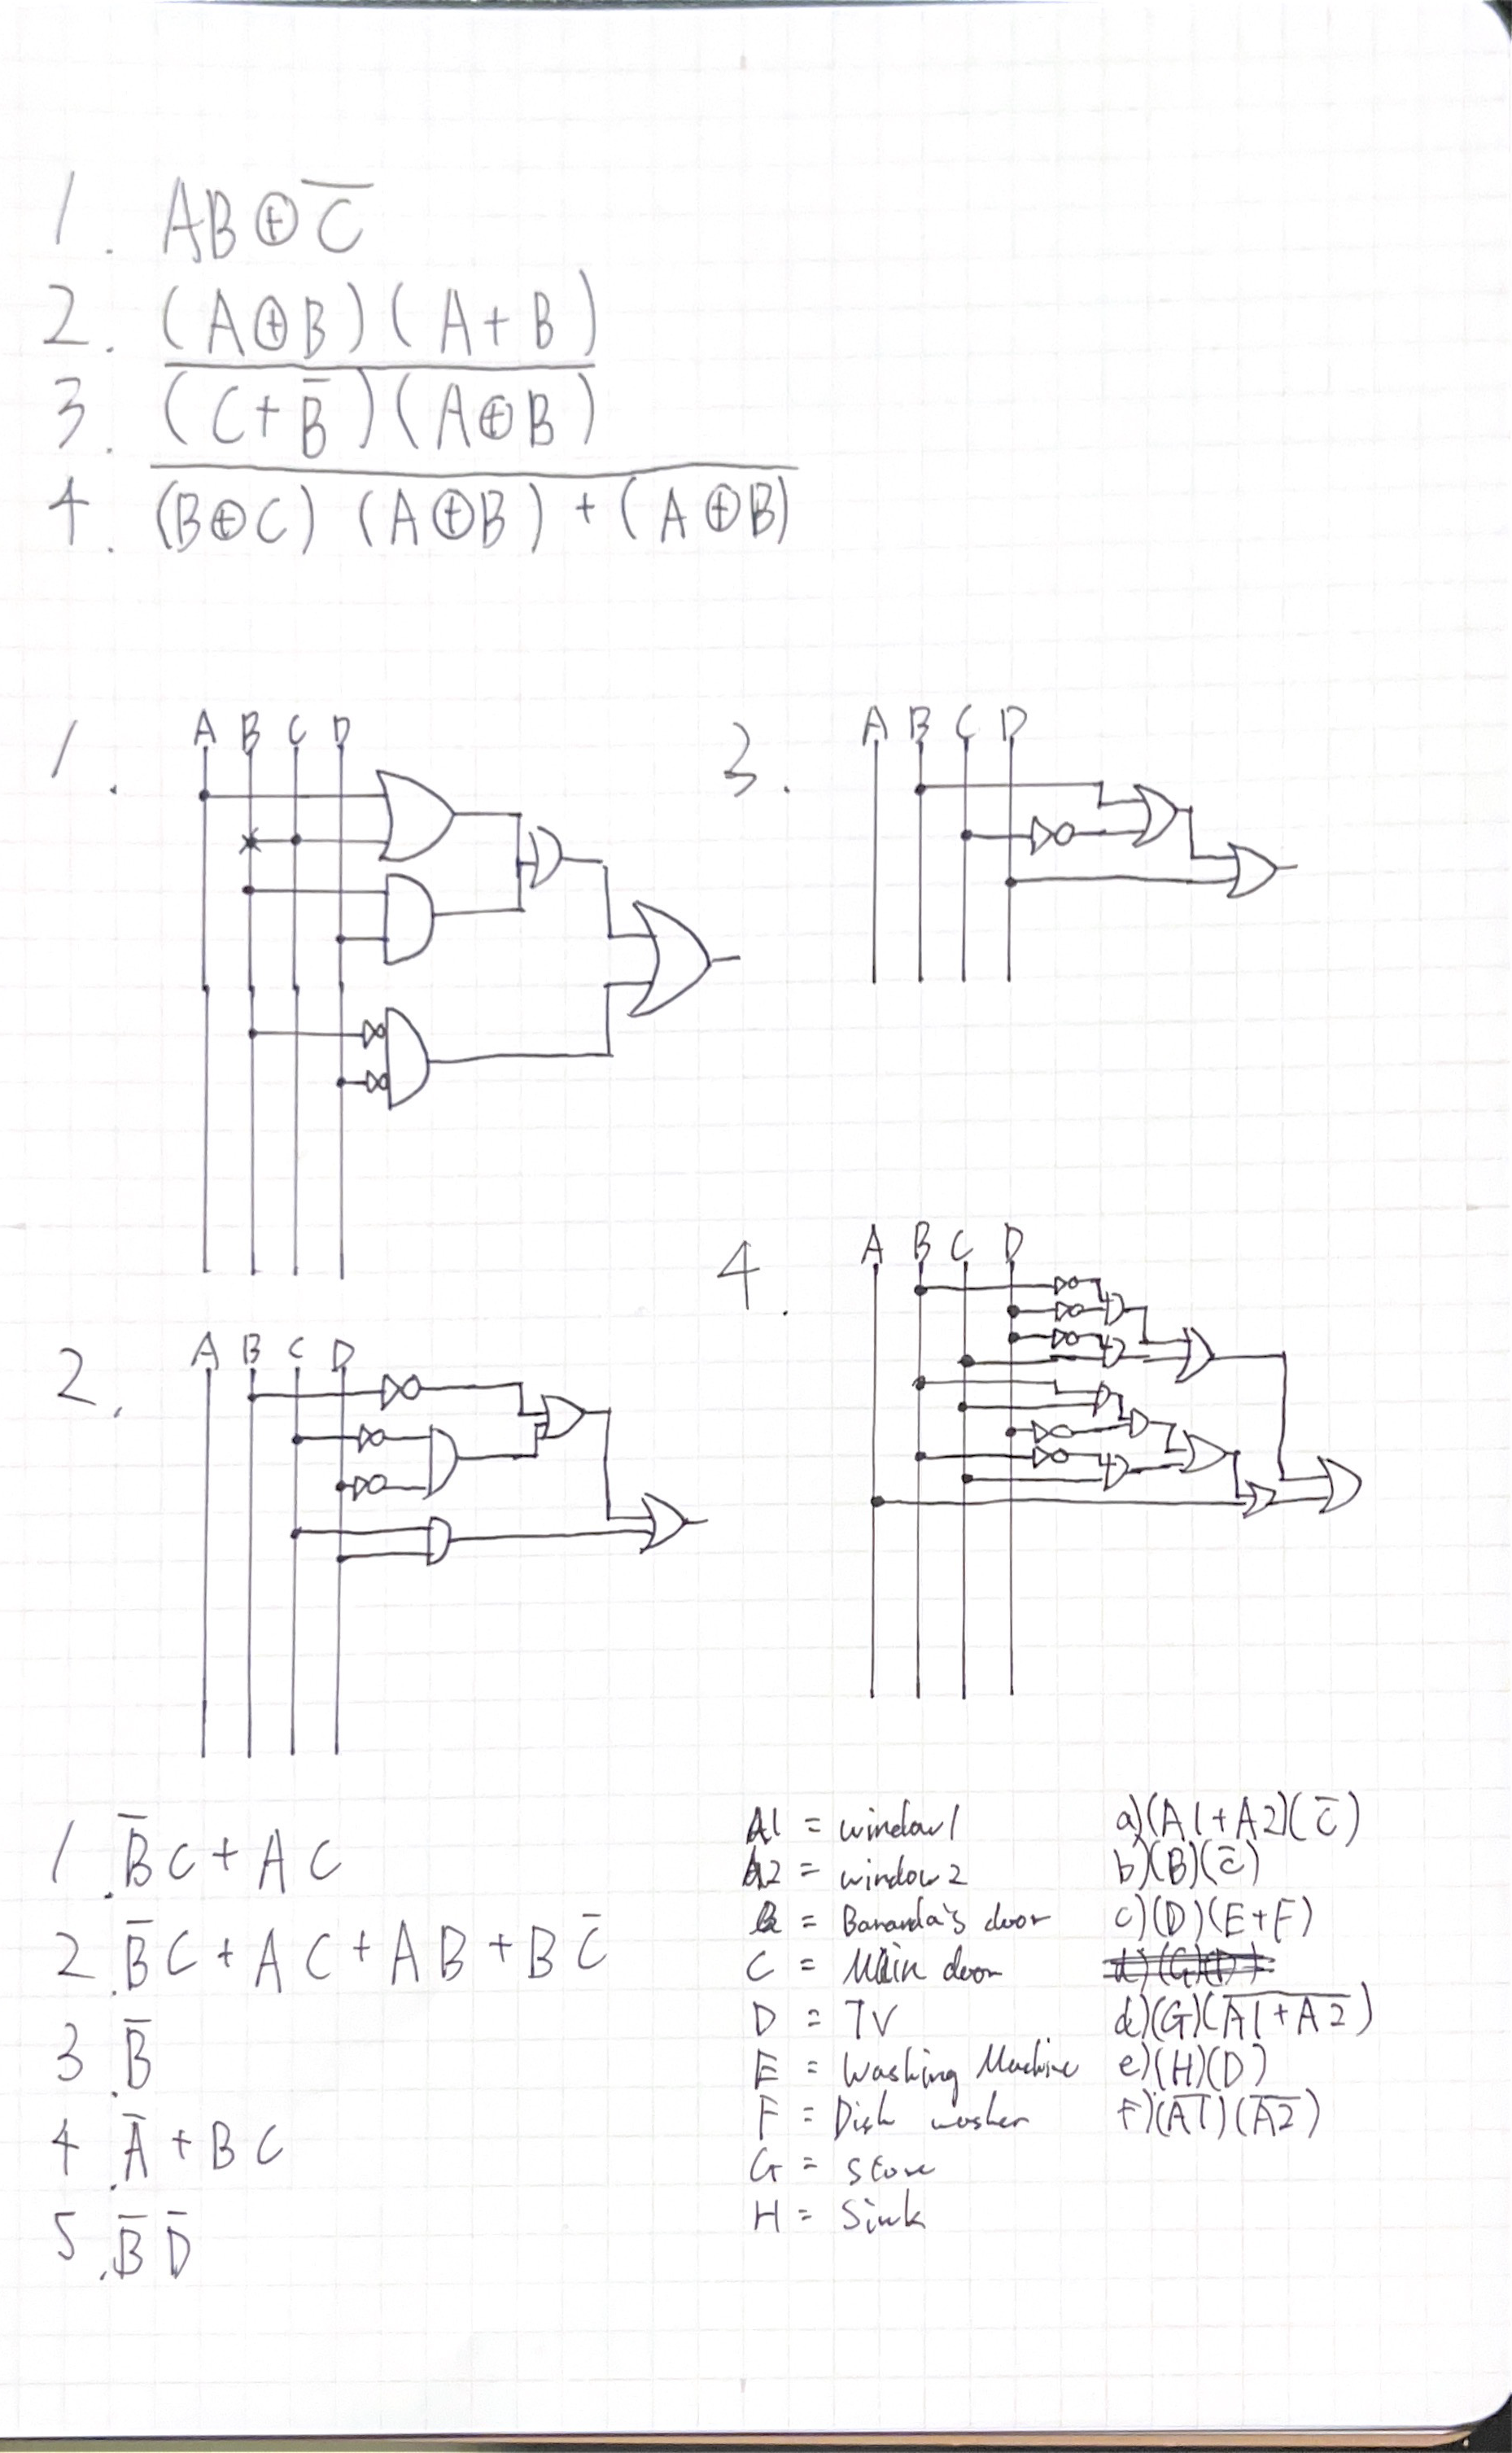 1. AB⊕C̅
2. (A⊕B)(A+B)
3. \overline{(C+B̅)(A⊕B)}
4. \overline{(B⊕C)(A⊕B)+(A⊕B)}
1. A B C D
3. A B C D
2. A B C D
4. A B C D
1. B̅C+AC
2. B̅C+AC+AB+BC̅
3. B̅
4. A̅+BC
5. B̅ D̅
A1 = window1
A2 = window2
B = Bananda's door
C = Main door
D = TV
E = Washing Machine
F = Dish washer
G = stove
H = Sink
a)(A1+A2)(C̅)
b)(B)(C̅)
c)(D)(E+F)
d)(G)(\overline{A1+A2})
e)(H)(D)
f)(\overline{A1})(\overline{A2})